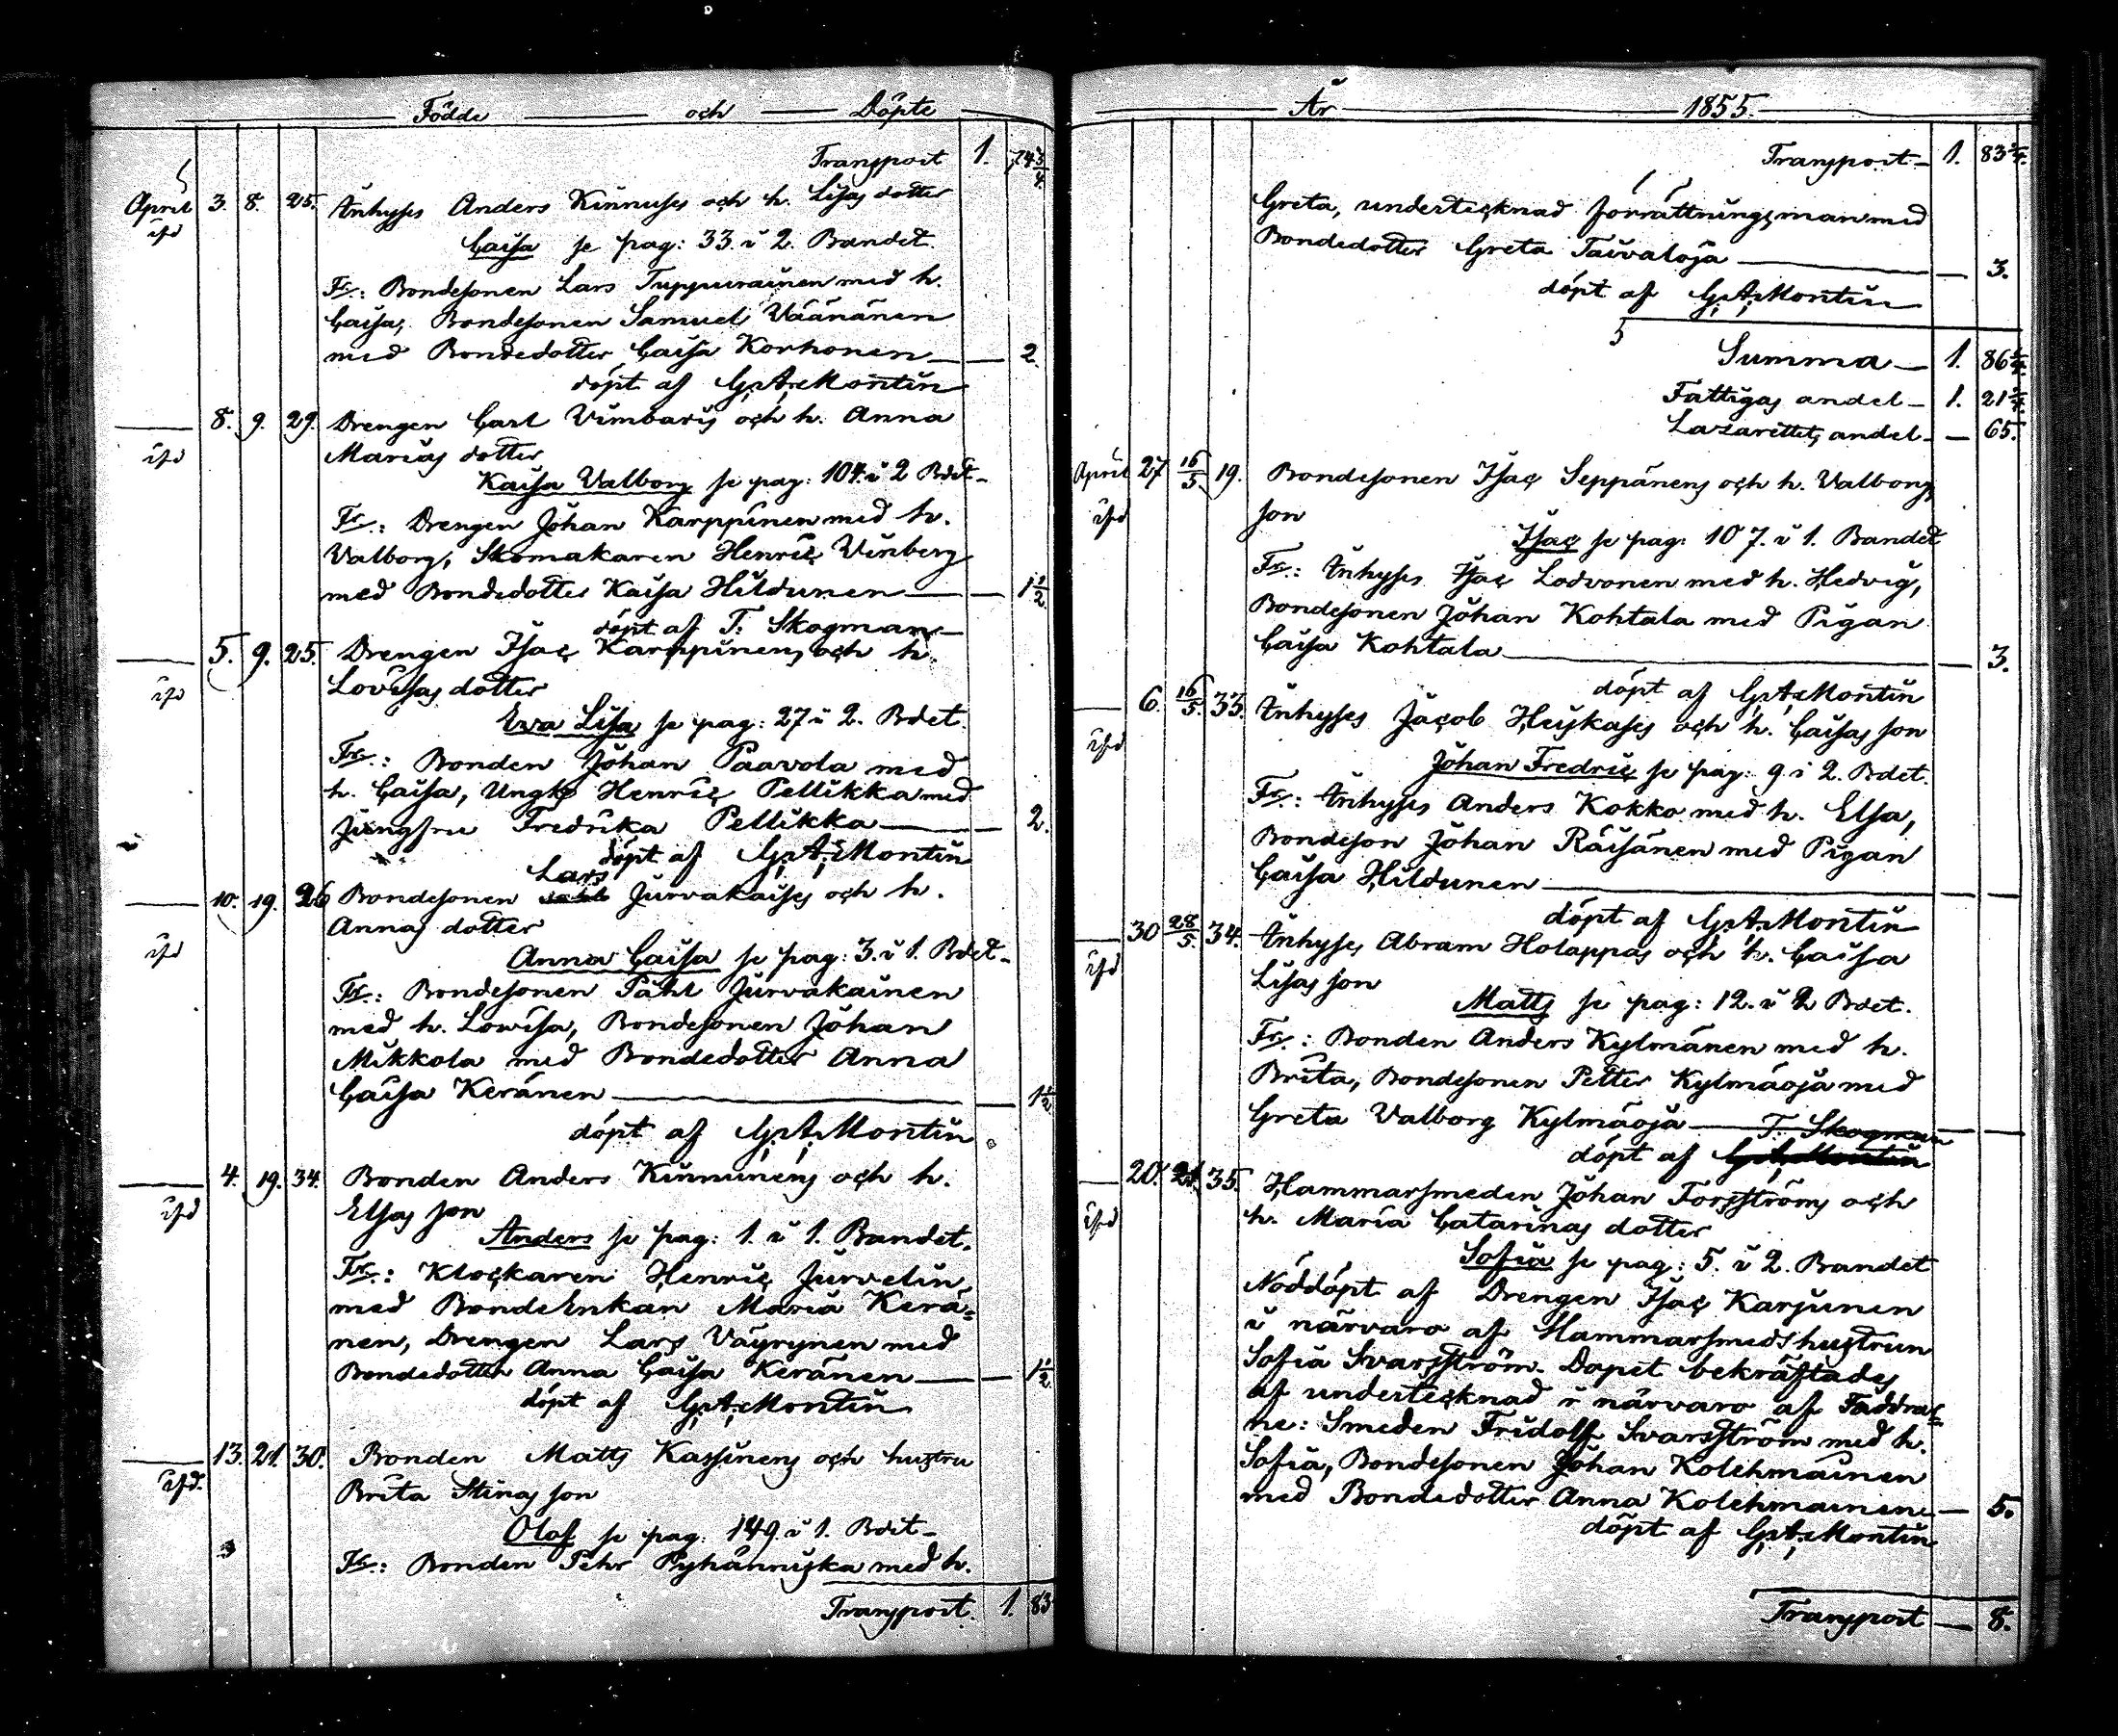 Födde och Döpte
Transport 1. 74 3/4.
April 3. 8. 25. Inhyses Anders Kinnuses och h. Lisas dotter
ifd Caisa se pag: 33. i 2. Bandet.
Fr: Bondesonen Lars Tuppurainen med h.
Caisa, Bondesonen Samuel Väänänen
med Bondedotter Caisa Korhonen — — 2.
döpt af G. A. Montin
— 8. 9. 29. Drengen Carl Vimbaris och h. Anna
ifd Marias dotter
Kaisa Valborg se pag: 104. i 2 Bdet-
Fr: Drengen Johan Karppinen med h.
Valborg, Skomakaren Henric Winberg
med Bondedotter Kaisa Hildunen — — 1 1/2.
döpt af T. Skogman
— 5. 9. 25. Drengen Isac Karppinens och h.
ifd Lovisas dotter
Eva Lisa se pag: 27 i 2. Bdet.
Fr: Bonden Johan Paavola med
h. Caisa, Ungk Henric Pellikka med
Jungfru Fredrika Pellikka — — 2.
döpt af G. A. Montin
Lars
— 10. 19. 26 Bondesonen Jurvakaises och h.
ifd Annas dotter
Anna Caisa se pag: 3. i 1. Bdet-
Fr: Bondesonen Påhl Jurvakainen
med h. Lowisa, Bondesonen Johan
Mikkola med Bondedotter Anna
Caisa Keränen — — 1 1/2
döpt af G. A. Montin
— 4. 19. 34. Bonden Anders Kinnunens och h.
ifd Elsas son
Anders se pag: 1. i 1. Bandet.
Fr: Klockaren Henric Jurvelin
med BondeEnkan Maria Kerä=
nen, Drengen Lars Väyrynen med
Bondedotter Anna Caisa Keränen — — 1 1/2.
döpt af G. A. Montin
— 13. 21. 30. Bonden Matts Kassinens och hustru
ifd. Brita Stinas son
Olof se pag. 149. i 1. Bdet-
Fr: Bonden Pehr Pyhänniska med h.
Transport. 1. 83
År 1855.
Transport — 1. 83 3/4.
Greta, undertecknad förrättningsman med
Bondedotter Greta Taivaloja — — 3.
döpt af G. A. Montin
Summa — 1. 86 3/4.
Fattigas andel — 1. 21 3/4.
Lazarettets andel — — 65.
April 27 16/5 19. Bondesonen Isac Seppänens och h. Valborgs
ifd son
Isac se pag: 107. i 1. Bandet
Fr: Inhyses Isac Lodvonen med h. Hedvig,
Bondesonen Johan Kohtala med Pigan
Caisa Kohtala — — 3.
döpt af G. A. Montin
— 6. 16/5. 33. Inhyses Jacob Heiskases och h. Caisas son
ifd Johan Fredric se pag: 9 i 2. Bdet.
Fr: Inhyses Anders Kokko med h. Elsa,
Bondeson Johan Räisänen med Pigan
Caisa Hildunen — — —
döpt af G. A. Montin
— 30 28/5 34. Inhyses Abram Holappas och h. Caisa
ifd Lisas son
Matts se pag: 12. i 2 Bdet.
Fr: Bonden Anders Kylmänen med h.
Brita, Bondesonen Petter Kylmäoja med
Greta Valborg Kylmäoja — — —
T. Skogman
döpt af G. A. Montin
— 20. 21. 35. Hammarsmeden Johan Forsströms och
ifd h. Maria Catarinas dotter
Sofia se pag: 5. i 2. Bandet
Nöddöpt af Drengen Isac Karjunen
i närvaro af Hammarsmedshustrun
Sofia Svarsström. Dopet bekräftades
af undertecknad i närvaro af Faddrar=
ne: Smeden Fridolf Svarsström med h.
Sofia, Bondesonen Johan Kolehmainen
med Bondedotter Anna Kolehmainen — 5.
döpt af G. A. Montin
Transport — 8.